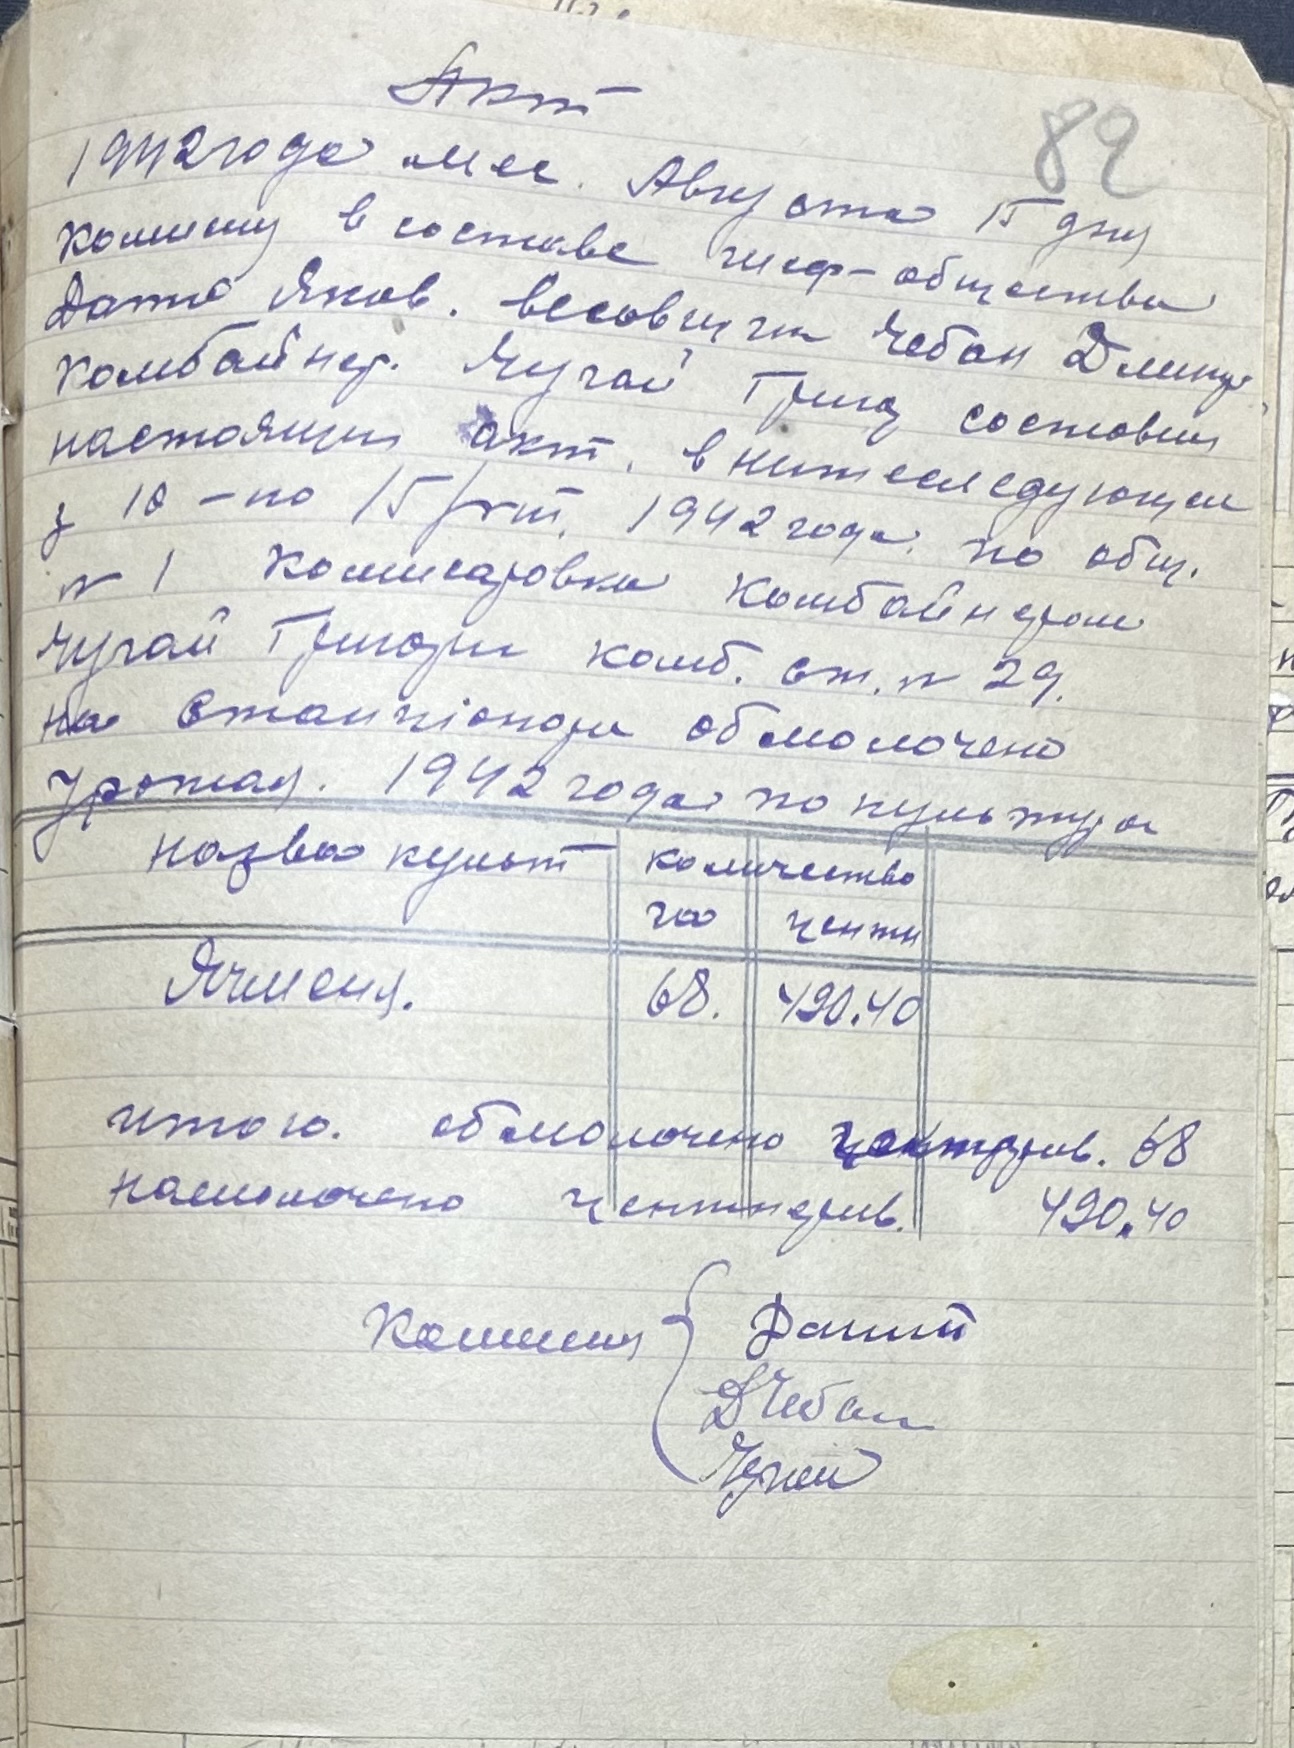 Акт
82
1942 года мес. Августа 15 дня
комисия в составе шеф-общества
Яков. весовщик Чебан Дмитр.
комбайнер. Чугай Григ составили
настоящий акт. в нижеследующем
з 10 - по 15/ 1942 года. по общ.
№ 1 Комисаровка комбайнером
Чугай Григори комб. ст. № 29.
на Станціонори обмолочено
урожая. 1942 года по культура
назва культ количество
га центн
Ячменя. 68. 490.40
итого. обмолочено 68
намолочено центнерив. 490.40
Комисия
ДЧебан
Чугай